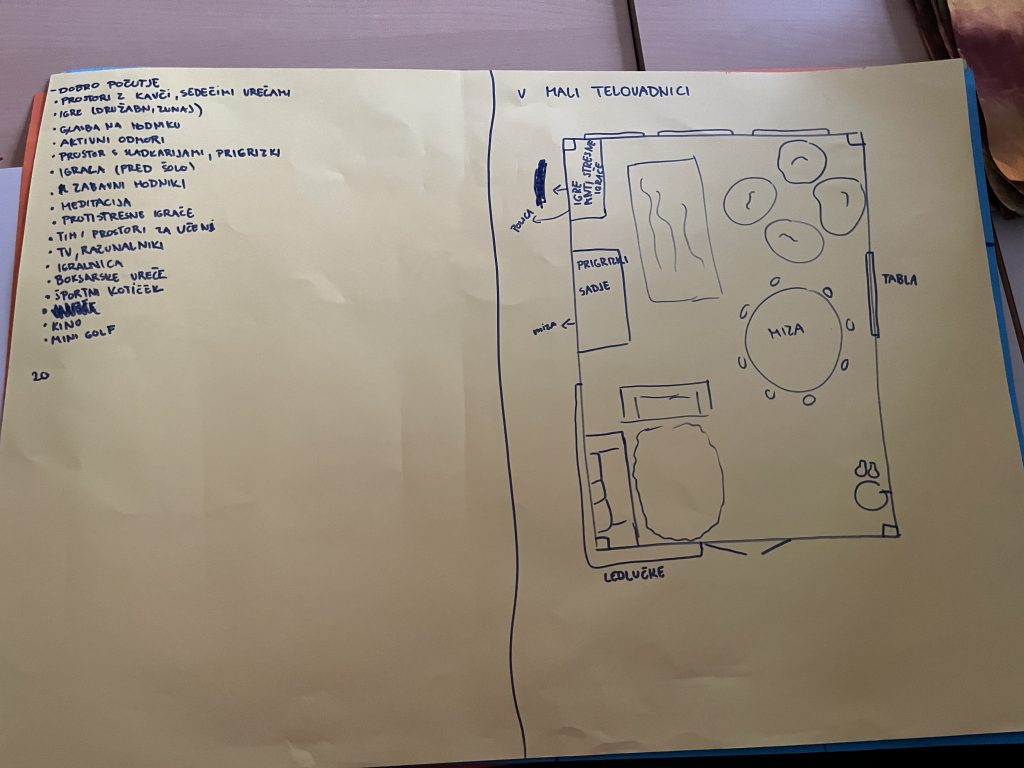 - DOBRO POČUTJE
• PROSTORI Z KAVČI, SEDEČIMI VREČAMI
• IGRE (DRUŽABNE, ZUNAJ)
• GLASBA NA HODNIKU
• AKTIVNI ODMORI
• PROSTOR S SLADKARIJAMI, PRIGRIZKI
• IGRALA (PRED ŠOLO)
• ZABAVNI HODNIKI
• MEDITACIJA
• PROTISTRESNE IGRAČE
• TIHI PROSTORI ZA UČENJE
• TV, RAČUNALNIKI
• IGRALNICA
• BOKSARSKE VREČE
• ŠPORTNI KOTIČEK
• KINO
• MINI GOLF
20
V MALI TELOVADNICI
IGRE
ANTISTRESNE
IGRAČE
POLICA
PRIGRIZKI
SADJE
MIZA
TABLA
MIZA
LEDLUČKE